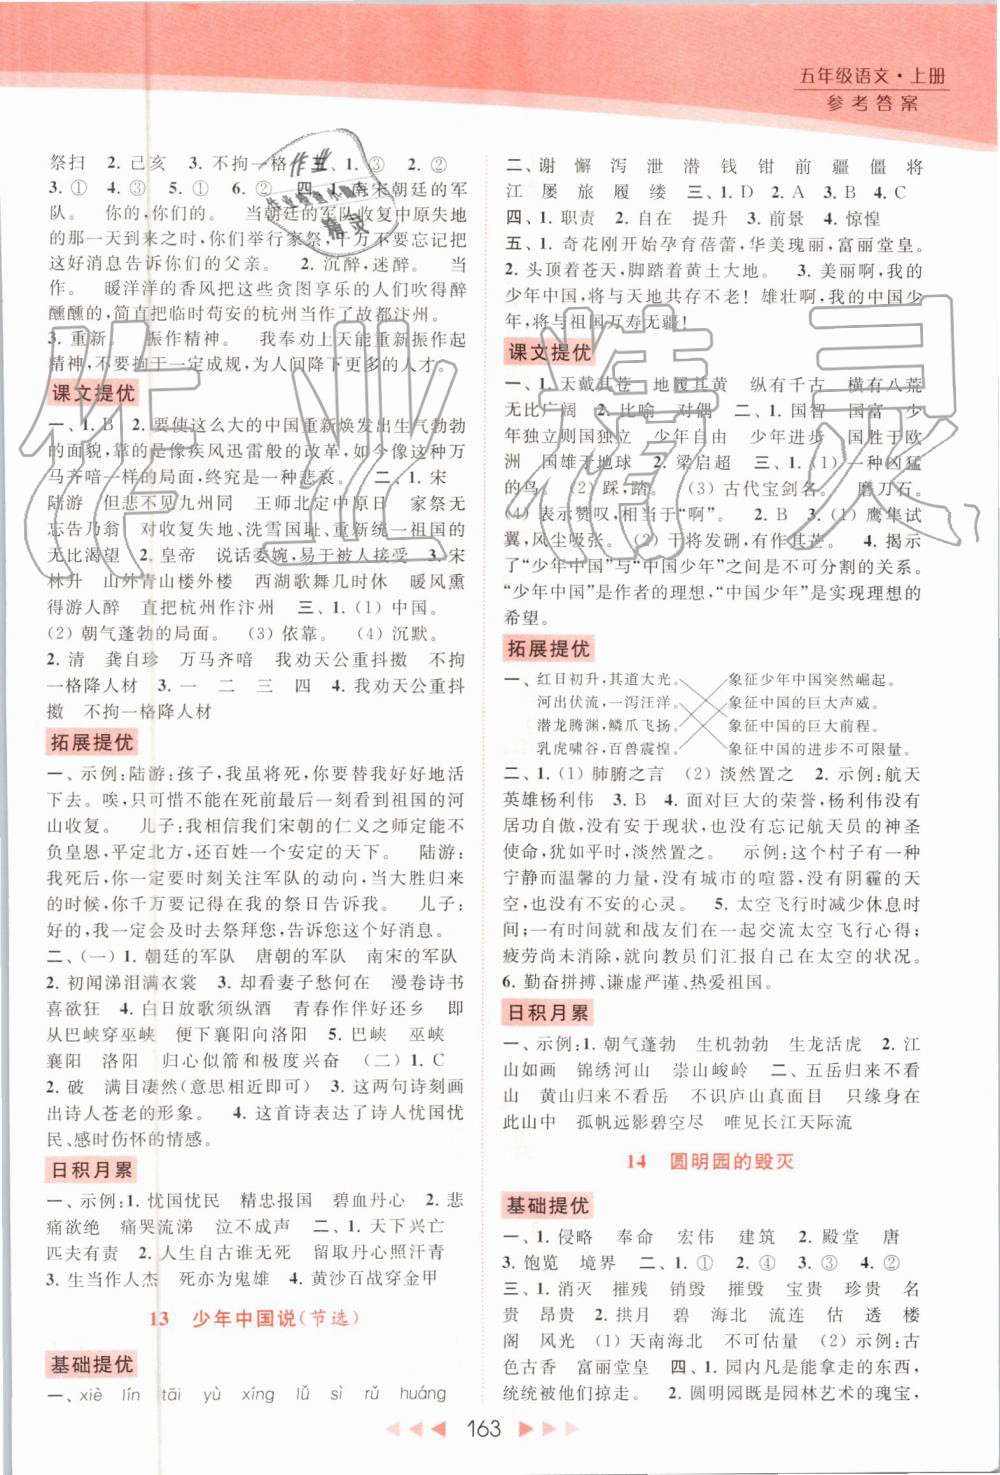 五年级语文·上册
参考答案
祭扫 2. 己亥 3. 不拘一格 三、1. ③ 2. ②
3. ① 4. ③ 5. ① 6. ② 四、1. 南宋朝廷的军
队。 你的,你们的。 当朝廷的军队收复中原失地
的那一天到来之时,你们举行家祭,千万不要忘记把
这好消息告诉你们的父亲。 2. 沉醉,迷醉。 当
作。 暖洋洋的香风把这些贪图享乐的人们吹得醉
醺醺的,简直把临时苟安的杭州当作了故都汴州。
3. 重新。 振作精神。 我奉劝上天能重新振作起
精神,不要拘于一定成规,为人间降下更多的人才。
课文提优
一、1. B 2. 要使这么大的中国重新焕发出生气勃勃
的面貌,靠的是像疾风迅雷般的改革,如今像这种万
马齐喑一样的局面,终究是一种悲哀。 二、1. 宋
陆游 但悲不见九州同 王师北定中原日 家祭无
忘告乃翁 对收复失地、洗雪国耻、重新统一祖国的
无比渴望 2. 皇帝 说话委婉,易于被人接受 3. 宋
林升 山外青山楼外楼 西湖歌舞几时休 暖风熏
得游人醉 直把杭州作汴州 三、1.(1) 中国。
(2) 朝气蓬勃的局面。 (3) 依靠。 (4) 沉默。
2. 清 龚自珍 万马齐喑 我劝天公重抖擞 不拘
一格降人材 3. 一 二 三 四 4. 我劝天公重抖
擞 不拘一格降人材
拓展提优
一、示例:陆游:孩子,我虽将死,你却要好好地活
下去。唉,只可惜不能在死前最后一刻看到祖国的河
山收复。 儿子:我相信我们宋朝的仁义之师定能不
负皇恩,平定北方,还百姓一个安定的天下。 陆游:
我死后,你一定要时刻关注军队的动向,当大胜归来
的时候,你千万要记得在我的祭日告诉我。 儿子:
好的,我一定会及时去祭拜您,告诉您这个好消息。
二、(一) 1. 朝廷的军队 唐朝的军队 南宋的军队
2. 初闻涕泪满衣裳 3. 却看妻子愁何在 漫卷诗书
喜欲狂 4. 白日放歌须纵酒 青春作伴好还乡 即
从巴峡穿巫峡 便下襄阳向洛阳 5. 巴峡 巫峡
襄阳 洛阳 归心似箭和极度兴奋 (二) 1. C
2. 破 满目凄然(意思相近即可) 3. 这两句诗刻画
出诗人苍老的形象。 4. 这首诗表达了诗人忧国忧
民、感时伤怀的情感。
日积月累
一、示例:1. 忧国忧民 精忠报国 碧血丹心 2. 悲
痛欲绝 痛哭流涕 泣不成声 二、1. 天下兴亡
匹夫有责 2. 人生自古谁无死 留取丹心照汗青
3. 生当作人杰 死亦为鬼雄 4. 黄沙百战穿金甲
13 少年中国说(节选)
基础提优
一、xiè lín tāi yù xíng lǚ sì rǔ huáng
二、谢 懈 泻 泄 潜 钱 钳 前 疆 僵 将
江 屡 旅 履 缕 三、1. D 2. A 3. B 4. C
四、1. 职责 2. 自在 提升 3. 前景 4. 惊惶
五、1. 奇花刚开始孕育蓓蕾,华美瑰丽,富丽堂皇。
2. 头顶着苍天,脚踏着黄土大地。 3. 美丽啊,我的
少年中国,将与天地共存不老!雄壮啊,我的中国少
年,将与祖国万寿无疆!
课文提优
一、1. 天戴其苍 地履其黄 纵有千古 横有八荒
无比广阔 2. 比喻 对偶 二、1. 国智 国富 少
年独立则国独立 少年自由 少年进步 国胜于欧
洲 国雄于地球 2. 梁启超 三、1.(1) 一种凶猛
的鸟。 (2) 踩,踏。 (3) 古代宝剑名。 磨刀石。
(4) 表示赞叹,相当于“啊”。 2. B 3.(1) 鹰隼试
翼,风尘吸张。(2) 干将发硎,有作其芒。 4. 揭示
了“少年中国”与“中国少年”之间是不可分割的关系。
“少年中国”是作者的理想,“中国少年”是实现理想的
希望。
拓展提优
一、红日初升,其道大光。 象征少年中国突然崛起。
河出伏流,一泻汪洋。 象征中国的巨大声威。
潜龙腾渊,鳞爪飞扬。 象征中国的巨大前程。
乳虎啸谷,百兽震惶。 象征中国的进步不可限量。
二、1.(1) 肺腑之言 (2) 淡然置之 2. 示例:航天
英雄杨利伟 3. B 4. 面对巨大的荣誉,杨利伟没有
居功自傲,没有安于现状,也没有忘记航天员的神圣
使命,犹如平时,淡然置之。 示例:这个村子有一种
宁静而温馨的力量,没有城市的喧嚣,没有阴霾的天
空,也没有不安的心灵。 5. 太空飞行时减少休息时
间;一有时间就和战友们在一起交流太空飞行心得;
疲劳尚未消除,就向教员们汇报在太空的状况。
6. 勤奋拼搏、谦虚严谨、热爱祖国。
日积月累
一、示例:1. 朝气蓬勃 生机勃勃 生龙活虎 2. 江
山如画 锦绣河山 崇山峻岭 二、1. 五岳归来不看
山 黄山归来不看岳 不识庐山真面目 只缘身在
此山中 孤帆远影碧空尽 唯见长江天际流
14 圆明园的毁灭
基础提优
一、1. 侵略 奉命 宏伟 建筑 2. 殿堂 唐
3. 饱览 境界 二、1. ① 2. ② 3. ④ 4. ②
三、1. 消灭 摧残 销毁 摧毁 宝贵 珍贵 名
贵 昂贵 2. 拱月 碧 海北 流连 估 透 楼
阁 风光 (1) 天南海北 不可估量 (2) 示例:古
色古香 富丽堂皇 四、1. 园内凡是能拿走的东西,
统统被他们掠走。 2. 圆明园既是园林艺术的瑰宝,
163
作业精灵